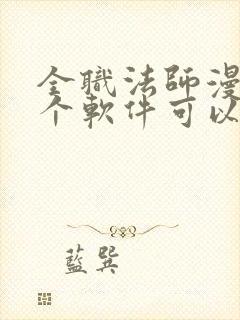 全職法師漫
个軟件可以
藍巽